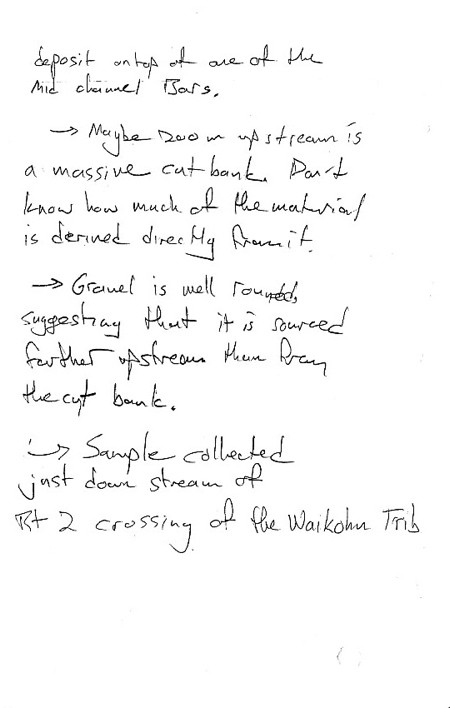 deposit on top of one of the
Mid channel Bars.
→ Maybe 200 m upstream is
a massive cutbank. Don't
know how much of the material
is derived directly from it.
→ Gravel is well rounded,
suggesting that it is sourced
farther upstream than from
the cut bank.
∴→ Sample collected
just down stream of
Rt 2 crossing of the Waikohu Trib